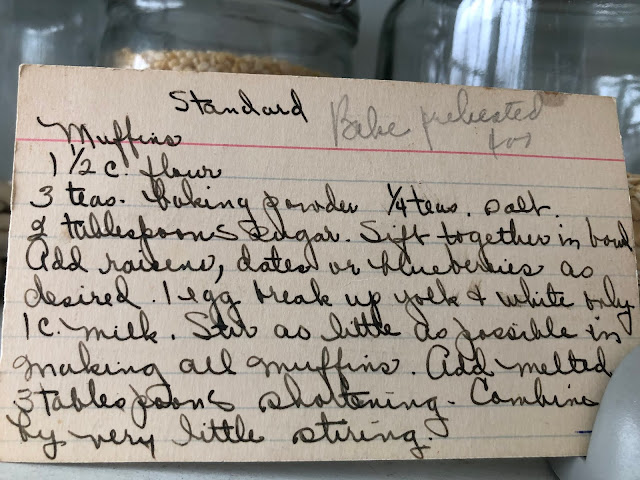 Standard
Bake preheated
Muffins
1 1/2 c. flour
3 teas. baking powder 1/4 teas. salt.
2 tablespoons sugar. Sift together in bowl
Add raisens, dates or blueberries as
desired. 1 egg break up yolk & white only
1 c. milk. Stir as little as possible in
making all muffins. Add melted
3 tablespoons shortening. Combine
by very little stiring.